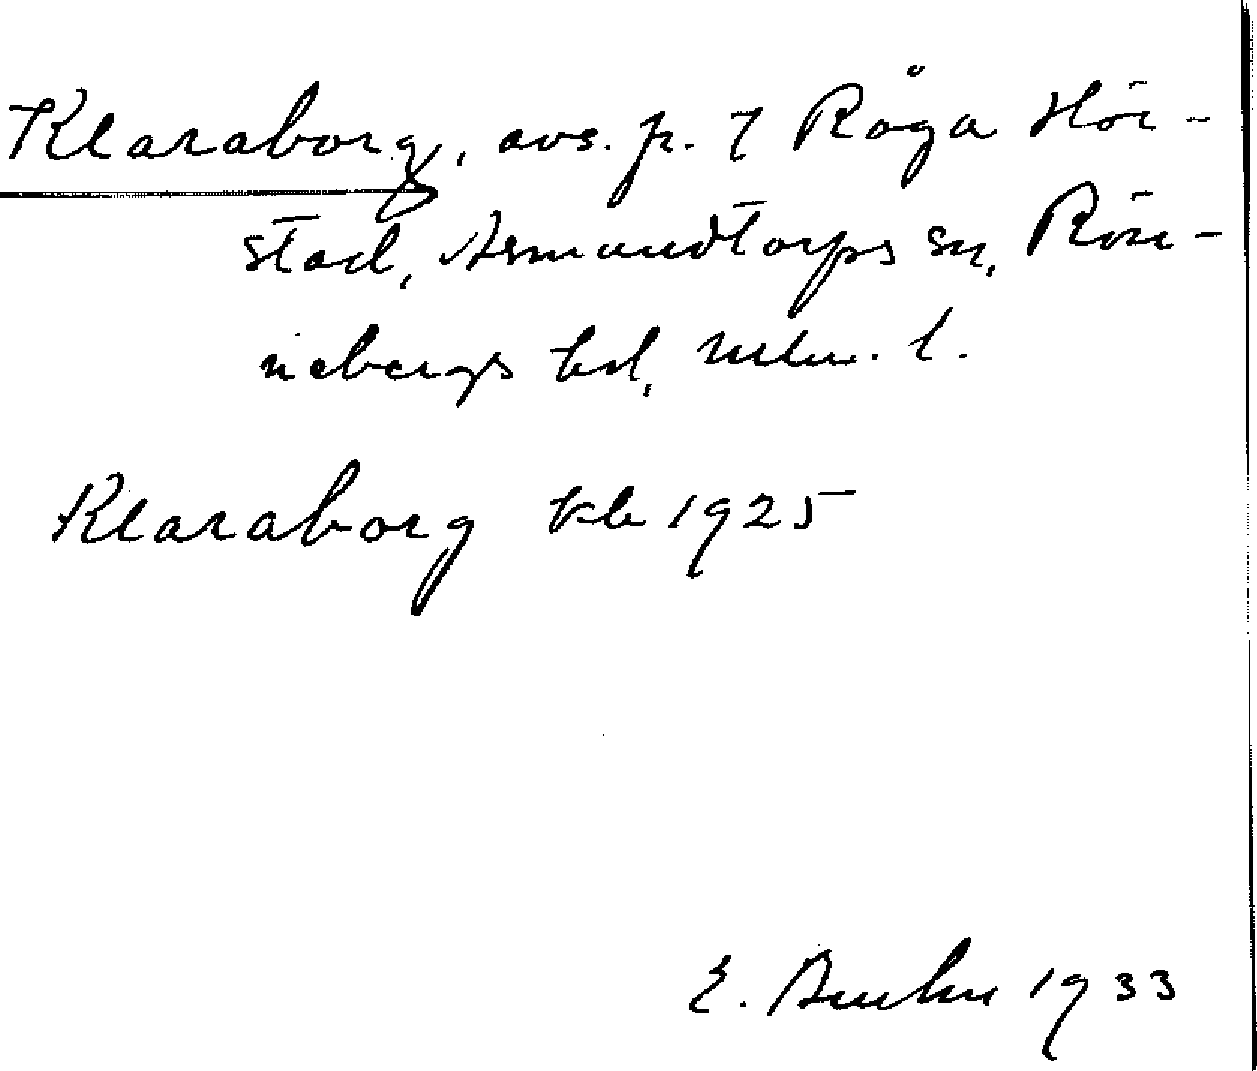 Klaraborg, avs. p. 7 Råga Hör-
stad, Asmundtorps sn, Rön-
nebergs hd, Mlm. l.
Klaraborg kb 1925
E. 1933